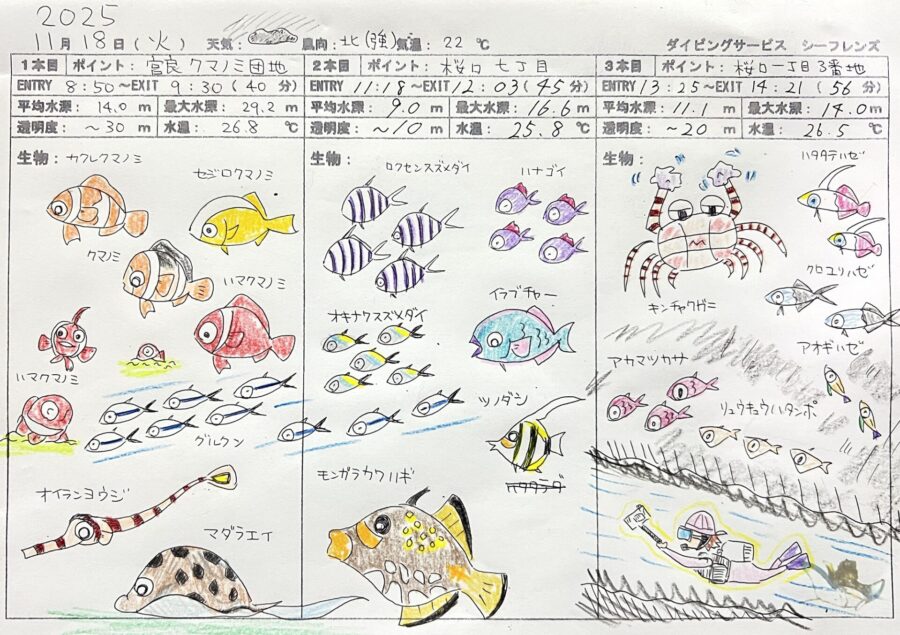 2025
11月18日(火) 天気: 風向:北(強)気温: 22 ℃ ダイビングサービス シーフレンズ
1本目 ポイント: 宮良 クマノミ団地
ENTRY 8:50～EXIT 9:30 (40分)
平均水深: 14.0 m 最大水深: 29.2 m
透明度: ～30 m 水温: 26.8 ℃
生物:
カクレクマノミ
セジロクマノミ
クマノミ
ハマクマノミ
ハマクマノミ
グルクン
オイランヨウジ
マダラエイ
2本目 ポイント: 桜口 七丁目
ENTRY 11:18～EXIT 12:03 (45分)
平均水深: 9.0 m 最大水深: 16.6 m
透明度: ～10 m 水温: 25.8 ℃
生物:
ロクセンスズメダイ
ハナゴイ
オキナワスズメダイ
イラブチャー
ツノダシ
ハタタテダイ
モンガラカワハギ
3本目 ポイント: 桜口一丁目3番地
ENTRY 13:25～EXIT 14:21 (56分)
平均水深: 11.1 m 最大水深: 14.0 m
透明度: ～20 m 水温: 26.5 ℃
生物:
ハタタテハゼ
クロユリハゼ
キンチャクガニ
アオギハゼ
アカマツカサ
リュウキュウハタンポ